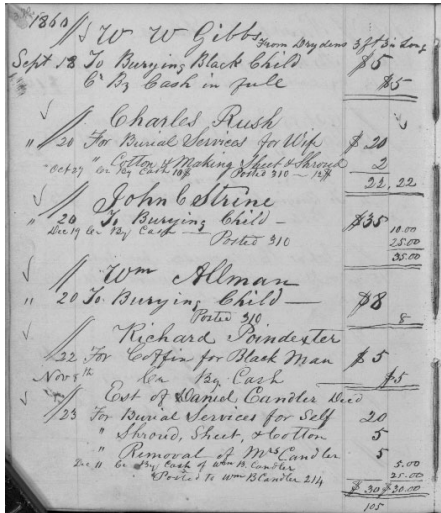 1860
W W Gibbs From Drydens 3 ft 3 in Long
Sept 18 To Burying Black Child $5
Cr By Cash in full $5
Charles Rush
" 20 For Burial Services for Wife $20
" Cotton & Making Sheet & Shroud 2
Oct 27 Cr By Cash 10$ Posted 310 — 12$ 22, 22
John C Strine
" 20 To Burying Child — $35
Dec 19 Cr By Cash — 10.00
Posted 310 25.00
35.00
Wm Allman
" 20 To Burying Child — $8
Posted 310 8
Richard Poindexter
" 22 For Coffin for Black Man $5
Nov 8th Cr By Cash $5
Est of Daniel Candler Decd
" 23 For Burial Services for Self 20
" Shroud, Sheet, & Cotton 5
" Removal of Mrs Candler 5
Dec 11 Cr By Cash of Wm B. Candler 5.00
Posted to Wm B Candler 214 25.00
$30 $30.00
105